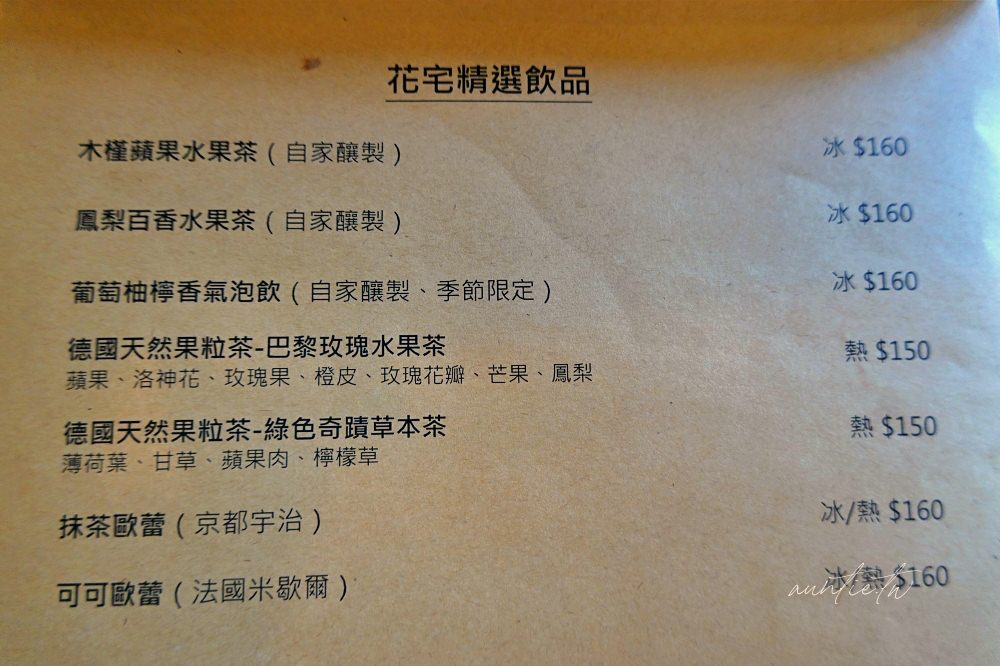 花宅精選飲品
木槿蘋果水果茶(自家釀製) 冰 $160
鳳梨百香水果茶(自家釀製) 冰 $160
葡萄柚檸香氣泡飲(自家釀製、季節限定) 冰 $160
德國天然果粒茶-巴黎玫瑰水果茶 熱 $150
蘋果、洛神花、玫瑰果、橙皮、玫瑰花瓣、芒果、鳳梨
德國天然果粒茶-綠色奇蹟草本茶 熱 $150
薄荷葉、甘草、蘋果肉、檸檬草
抹茶歐蕾(京都宇治) 冰/熱 $160
可可歐蕾(法國米歇爾) 冰/熱 $160
auntie.th